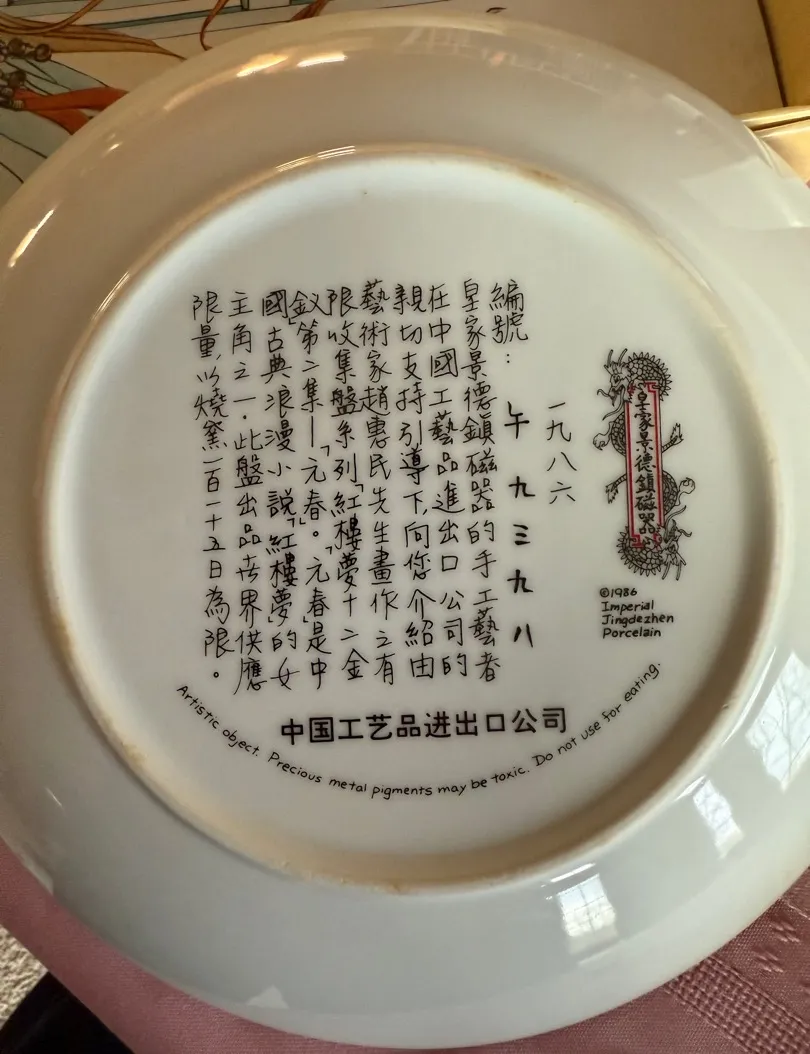 皇家景德鎮磁器
©1986
Imperial
Jingdezhen
Porcelain
一九八六
編號：午九三九八
皇家景德鎮磁器的手工藝者
在中國工藝品進出口公司的
親切支持引導下,向您介紹由
藝術家趙惠民先生畫作之有
限收集盤系列「紅樓夢十二金
釵」第二集—「元春。「元春」是中
國古典浪漫小說「紅樓夢」的女
主角之一.此盤出品世界供應
限量,以燒窯一百一十五日為限。
中国工艺品进出口公司
Artistic object. Precious metal pigments may be toxic. Do not use for eating.